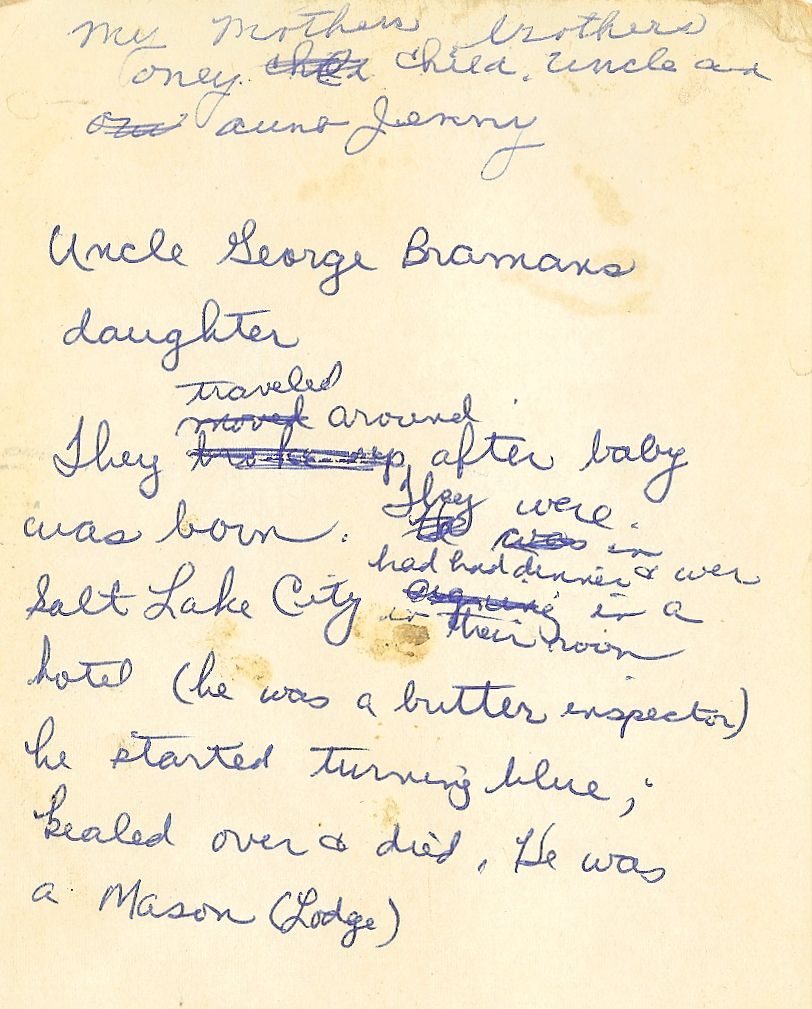 My Mothers brothers
Toney child. Uncle an
aunt Jenny
Uncle George Bramans
daughter
traveled
moved around.
They broke up, after baby
was born. They were.
was in
had had dinner & wer
Salt Lake City arguing in a
in their room
hotel (he was a butter inspector)
he started turning blue,
kealed over & died. He was
a Mason (Lodge)